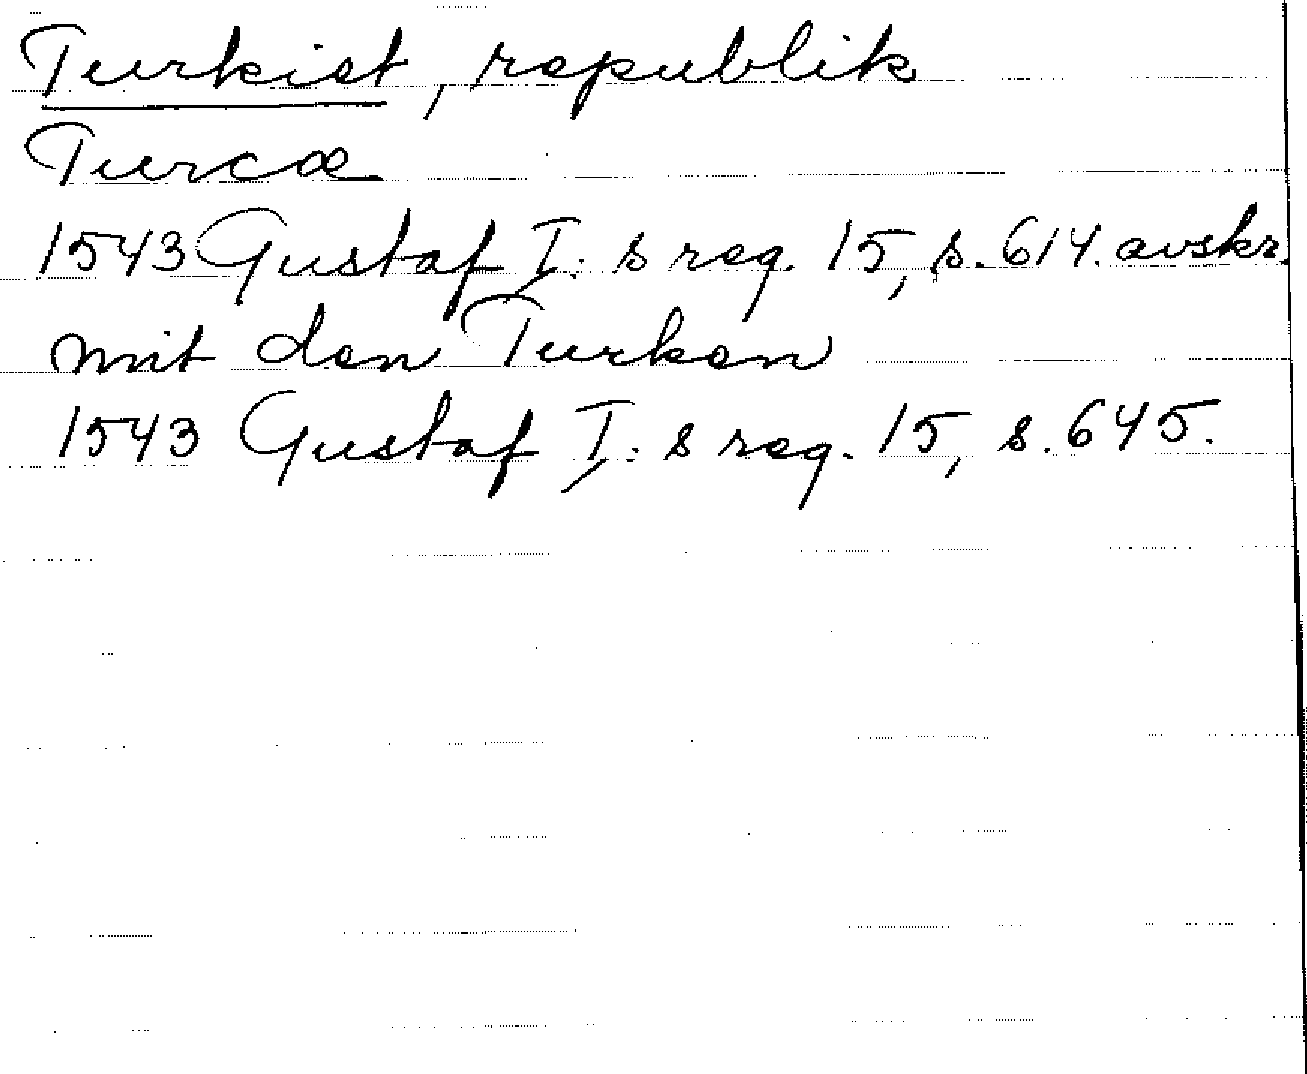 Turkiet, republik
Turcæ
1543 Gustaf I:s reg. 15, s. 614. avskr.
mit den Turken
1543 Gustaf I:s reg. 15, s. 645.